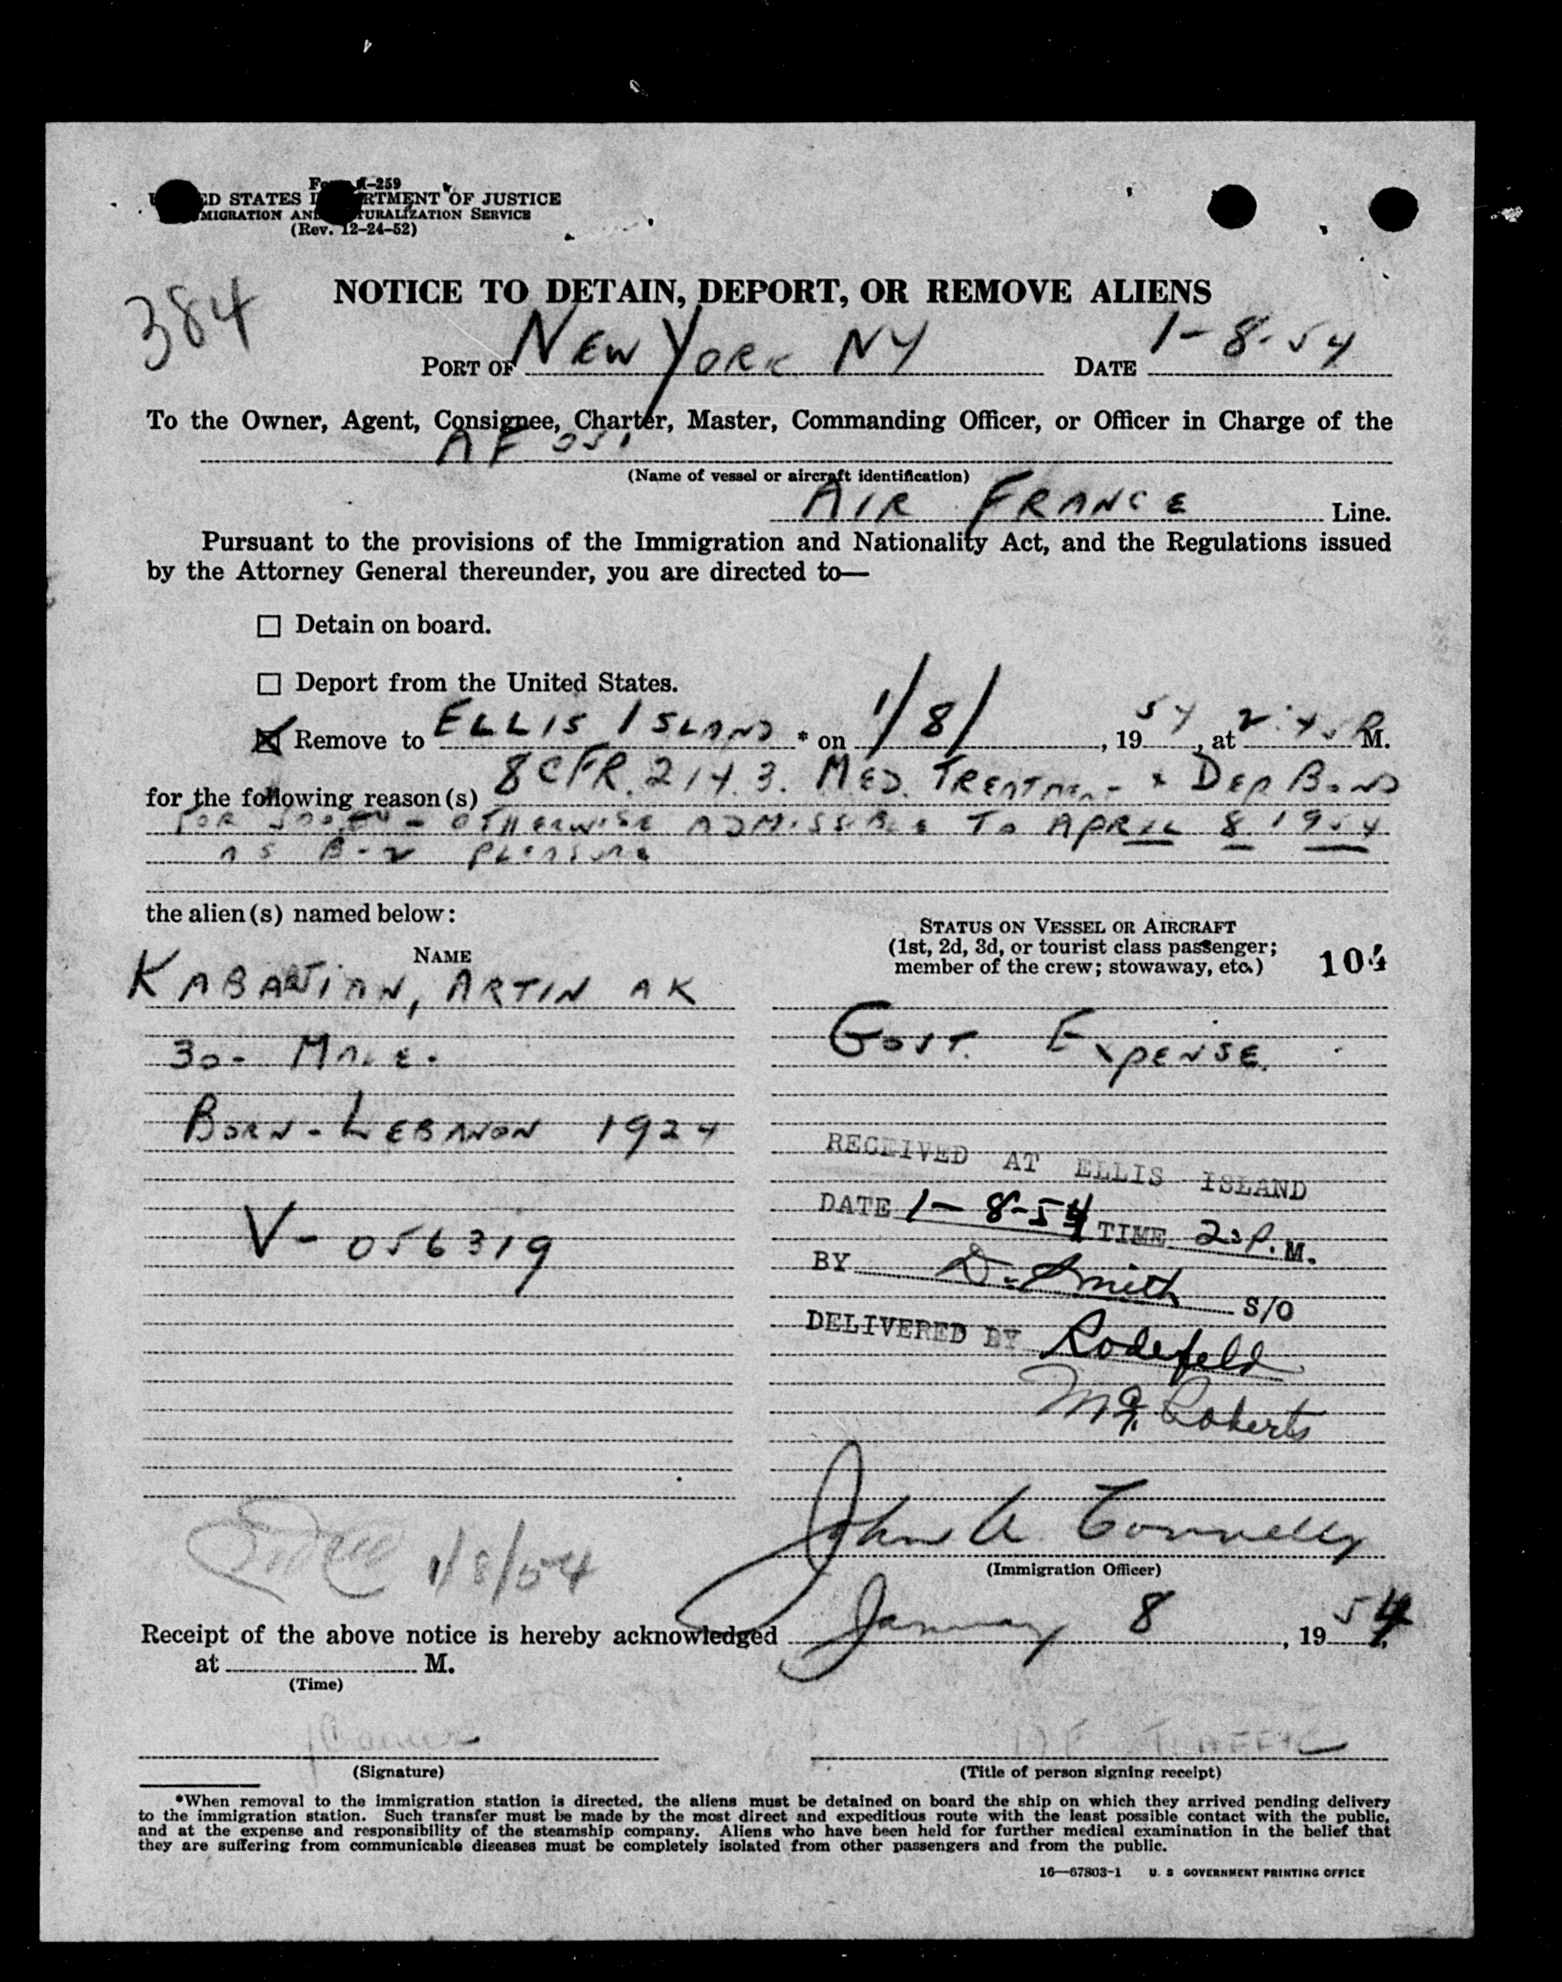 Form I-259
UNITED STATES DEPARTMENT OF JUSTICE
IMMIGRATION AND NATURALIZATION SERVICE
(Rev. 12-24-52)
384
NOTICE TO DETAIN, DEPORT, OR REMOVE ALIENS
PORT OF NEW YORK NY DATE 1-8-54
To the Owner, Agent, Consignee, Charter, Master, Commanding Officer, or Officer in Charge of the
AF 051
(Name of vessel or aircraft identification)
AIR FRANCE Line.
Pursuant to the provisions of the Immigration and Nationality Act, and the Regulations issued
by the Attorney General thereunder, you are directed to—
Detain on board.
Deport from the United States.
Remove to ELLIS ISLAND * on 1/8/, 1954, at 2:45 P M.
for the following reason(s) 8 CFR. 214.3. MED. TREATMENT + DEP BOND
FOR OTHERWISE ADMISSIBLE TO APRIL 8 1954
AS B-2 PLEASURE
the alien(s) named below:
STATUS ON VESSEL OR AIRCRAFT
(1st, 2d, 3d, or tourist class passenger;
member of the crew; stowaway, etc.) 104
NAME
KABAJIAN, ARTIN AK
GOVT. EXPENSE.
30- MALE.
BORN - LEBANON 1924
V- 056319
RECEIVED AT ELLIS ISLAND
DATE 1-8-54 TIME P.M.
BY D. Smith S/O
DELIVERED BY Rodefeld
Roberts
John A. Connelly
(Immigration Officer)
1/8/54
Receipt of the above notice is hereby acknowledged January 8, 1954,
at M.
(Time)
AF TRAFFIC
(Signature) (Title of person signing receipt)
*When removal to the immigration station is directed, the aliens must be detained on board the ship on which they arrived pending delivery
to the immigration station. Such transfer must be made by the most direct and expeditious route with the least possible contact with the public,
and at the expense and responsibility of the steamship company. Aliens who have been held for further medical examination in the belief that
they are suffering from communicable diseases must be completely isolated from other passengers and from the public.
16—67803-1 U. S GOVERNMENT PRINTING OFFICE